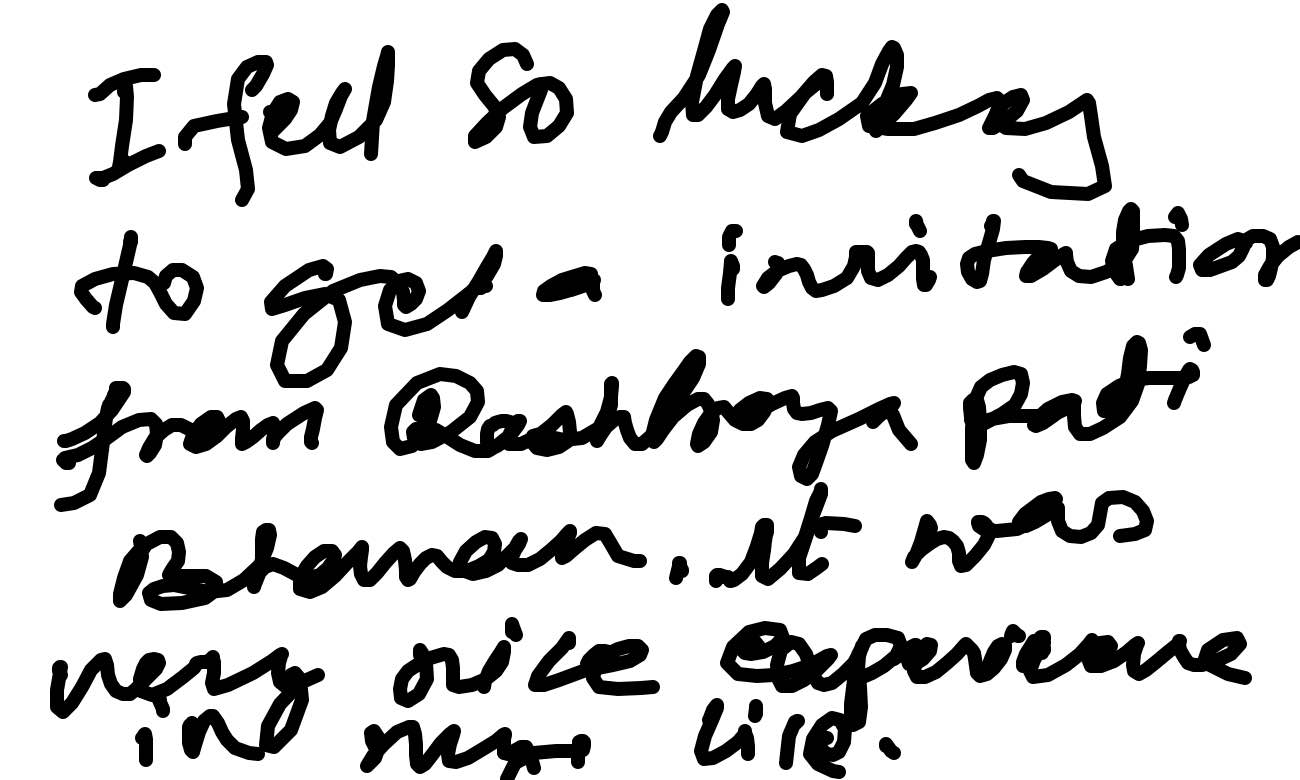 I feel so luckey
to get a invitation
from Rashtroya Pati
Bhanan. It was
very nice experience
in my life.